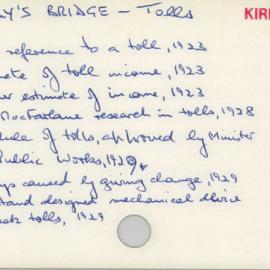 Y'S BRIDGE - Tolls
KIR
reference to a toll, 1923
of toll income, 1923
estimate of income, 1923
MacFarlane research in tolls, 1928
of tolls, approved by Minister
Public Works, 1929
caused by giving change, 1929
designed mechanical device
tolls, 1929